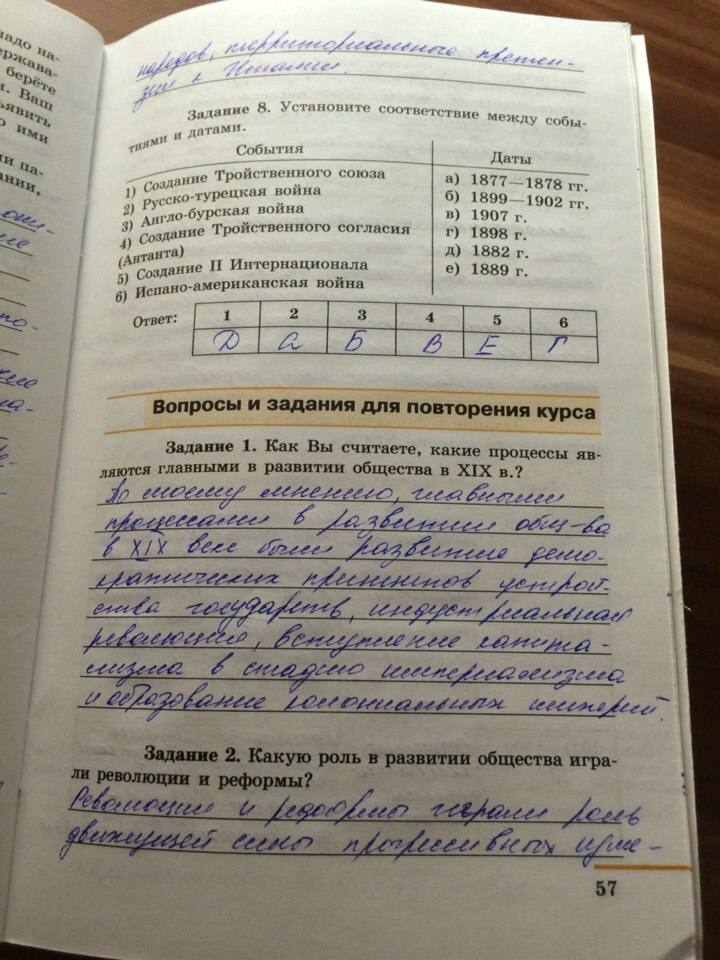 надо на-
держава-
берёте
и. Ваш
ъявить
о ими
и па-
ании,
народов, территориального претен-
зии к Италии.
Задание 8. Установите соответствие между собы-
тиями и датами.
События
Даты
1) Создание Тройственного союза
2) Русско-турецкая война
3) Англо-бурская война
4) Создание Тройственного согласия
(Антанта)
5) Создание II Интернационала
6) Испано-американская война
а) 1877—1878 гг.
б) 1899—1902 гг.
в) 1907 г.
г) 1898 г.
д) 1882 г.
е) 1889 г.
Ответ: 1 2 3 4 5 6
Д а Б В Е Г
Вопросы и задания для повторения курса
Задание 1. Как Вы считаете, какие процессы яв-
ляются главными в развитии общества в XIX в.?
По моему мнению, главными
процессами в развитии общ-ва
в XIX веке были развитие демо-
кратических принципов устрой-
ства государств, индустриальная
революция, вступление капита-
лизма в стадию империализма
и образование колониальных империй.
Задание 2. Какую роль в развитии общества игра-
ли революции и реформы?
Революции и реформы играли роль
движущей силы прогрессивных изме-
57